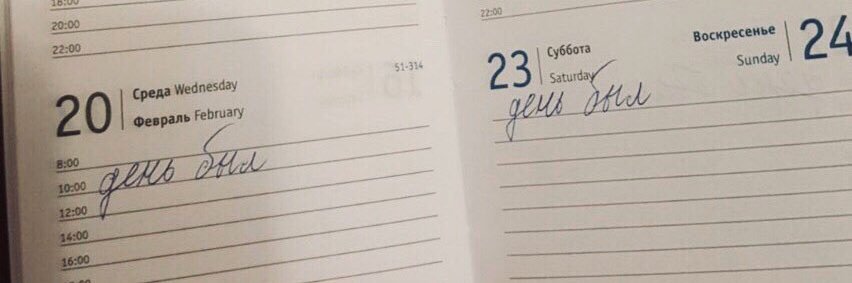 18:00
20:00
22:00
51-314
20
Среда Wednesday
Февраль February
8:00
10:00 день был
12:00
14:00
16:00
22:00
23
Суббота
Saturday
Воскресенье
Sunday
24
день был